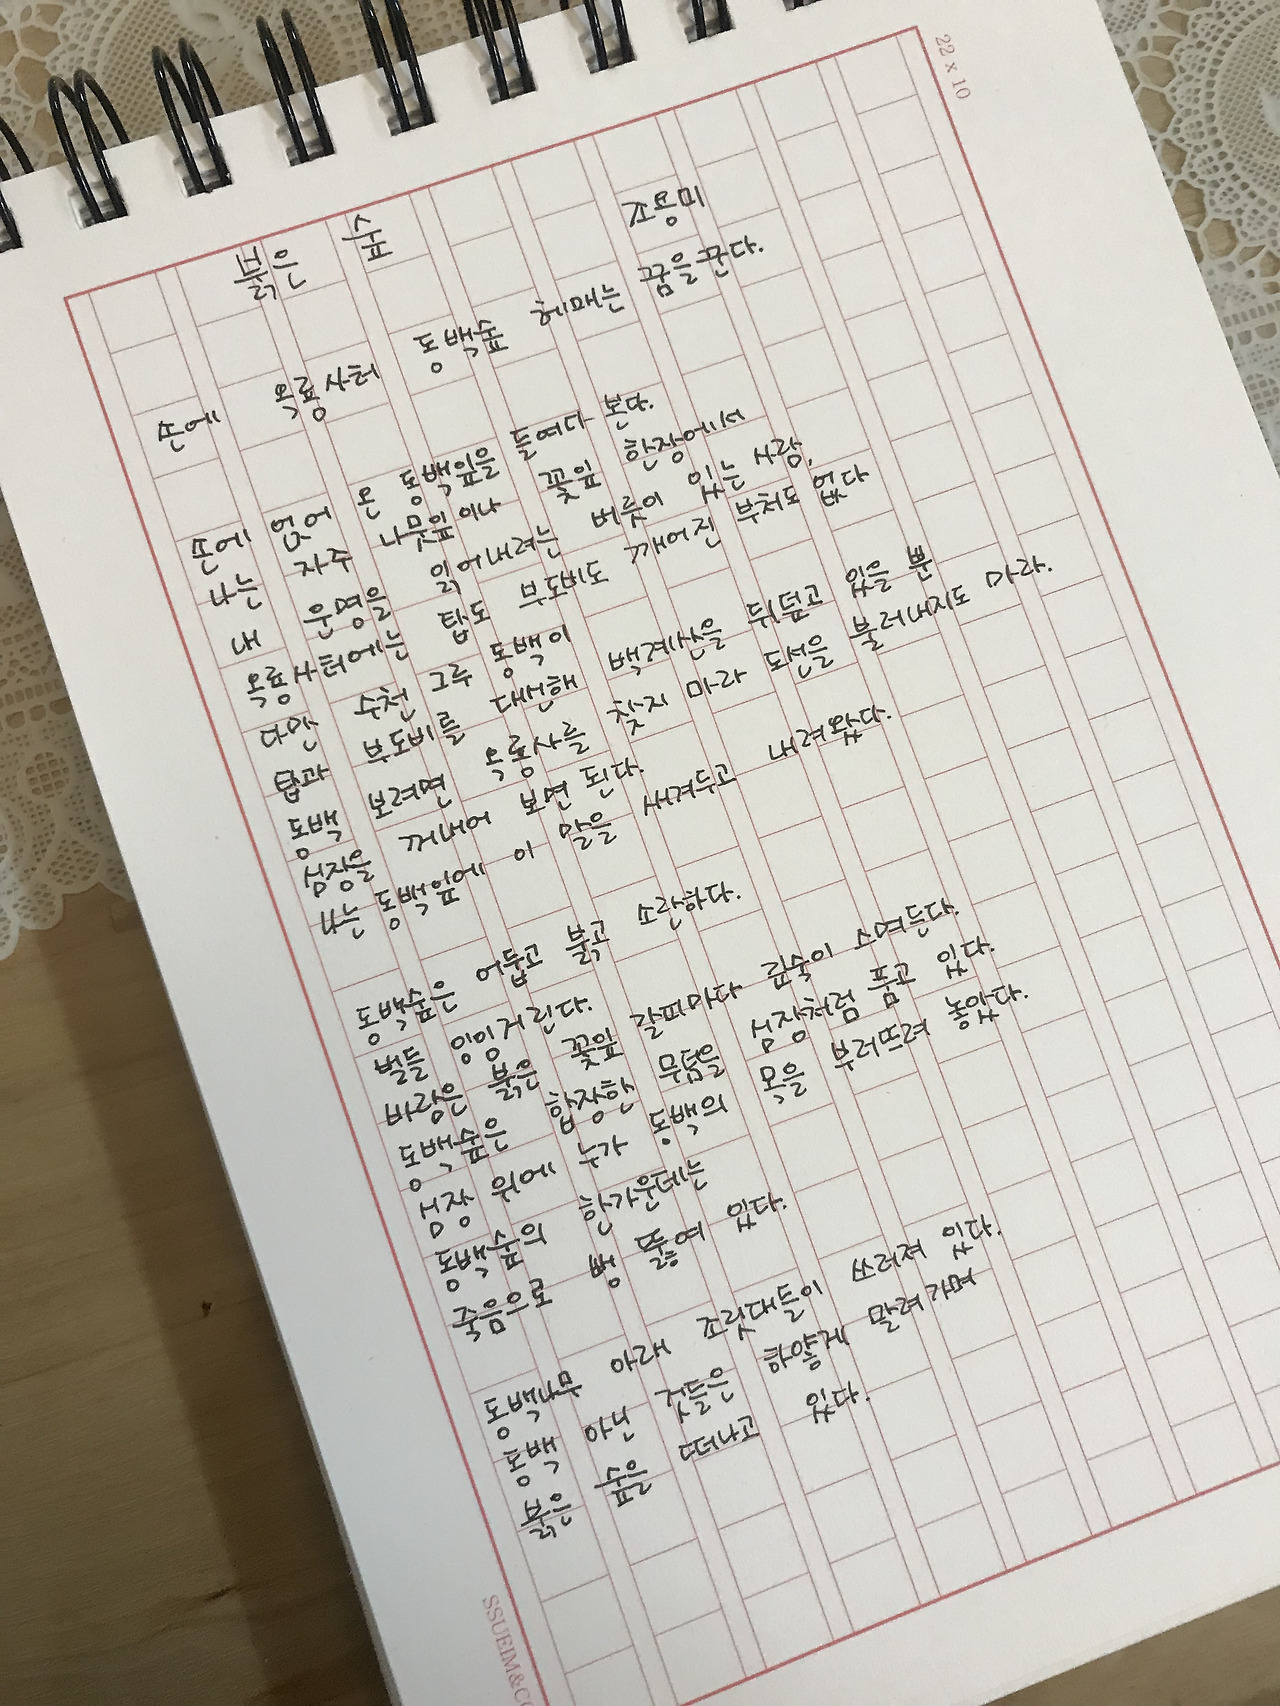 22 x 10
붉은 숲
조용미
손에 옥룡사터 동백숲 헤매는 꿈을 꾼다.
손에 없어 온 동백잎을 들여다 본다.
나는 자주 나뭇잎이나 꽃잎 한장에서
내 운명을 읽어내려는 버릇이 있는 사람,
옥룡사터에는 탑도 부도비도 깨어진 부처도 없다
다만 수천 그루 동백이
탑과 부도비를 대신해 백계산을 뒤덮고 있을 뿐
동백 보려면 옥룡사를 찾지 마라 도선을 불러내지도 마라.
심장을 꺼내어 보면 된다.
나는 동백잎에 이 말을 새겨두고 내려왔다.
동백숲은 어둡고 붉고 소란하다.
벌들 잉잉거린다.
바람은 붉은 꽃잎 갈피마다 깊숙이 스며든다.
동백숲은 합장한 무덤을 심장처럼 품고 있다.
심장 위에 누가 동백의 목을 부러뜨려 놓았다.
동백숲의 한가운데는
죽음으로 뻥 뚫여 있다.
동백나무 아래 조릿대들이 쓰러져 있다.
동백 아닌 것들은 하얗게 말려가며
붉은 숲을 떠나고 있다.